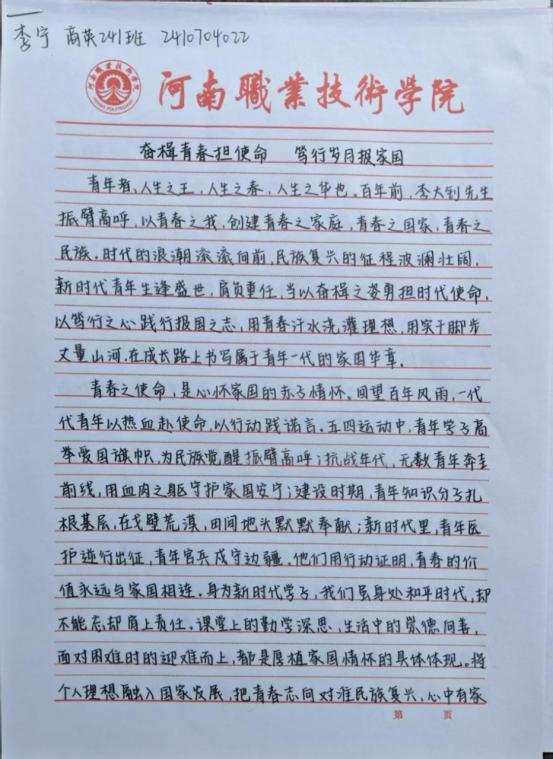 李宁 商英241班 2410704022
河南職業技術學院
奋楫青春担使命 笃行岁月报家国
青年者,人生之王,人生之春,人生之华也。百年前,李大钊先生
振臂高呼,以青春之我,创建青春之家庭,青春之国家,青春之
民族。时代的浪潮滚滚向前,民族复兴的征程波澜壮阔,
新时代青年生逢盛世,肩负重任,当以奋楫之姿勇担时代使命,
以笃行之心践行报国之志,用青春汗水浇灌理想,用实干脚步
丈量山河,在成长路上书写属于青年一代的家国华章。
青春之使命,是心怀家国的赤子情怀。回望百年风雨,一代
代青年以热血赴使命,以行动践诺言。五四运动中,青年学子高
举爱国旗帜,为民族觉醒振臂高呼;抗战年代,无数青年奔走
前线,用血肉之躯守护家国安宁;建设时期,青年知识分子扎
根基层,在戈壁荒漠,田间地头默默奉献;新时代里,青年医
护逆行出征,青年官兵戍守边疆。他们用行动证明,青春的价
值永远与家国相连。身为新时代学子,我们虽身处和平时代,却
不能忘却肩上责任。课堂上的勤学深思,生活中的崇德向善,
面对困难时的迎难而上,都是厚植家国情怀的具体体现。将
个人理想融入国家发展,把青春志向对准民族复兴,心中有家
第 页